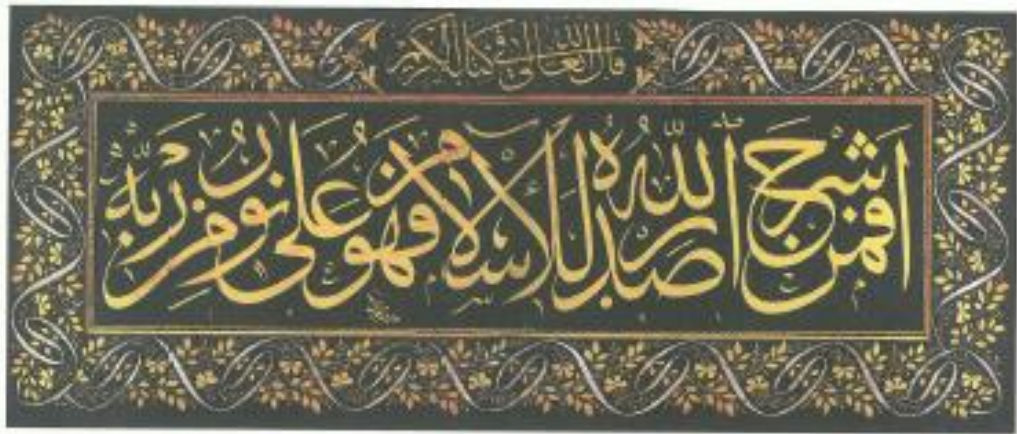 قال الله تعالى في كتابه الكريم
أَفَمَنْ شَرَحَ اللهُ صَدْرَهُ لِلْإِسْلَامِ فَهُوَ عَلَى نُورٍ مِنْ رَبِّهِ